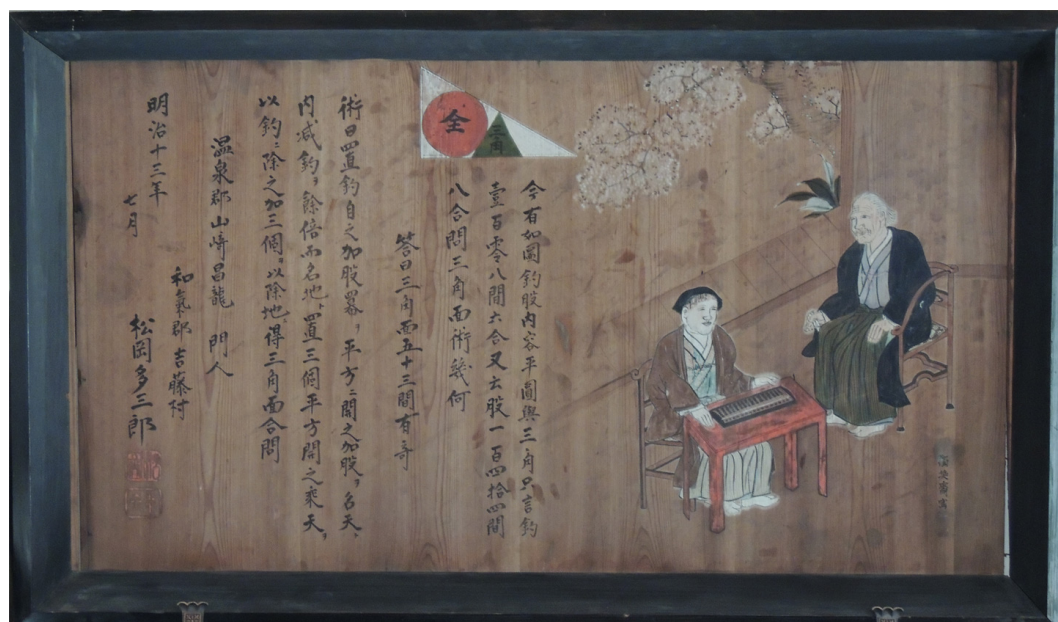 全
三角
今有如圖鈎股内容平圓與三角只言鈎
壹百零八間六合又云股一百四拾四間
八合問三角面術幾何
答曰三角面五十三間有奇
術曰置鈎自之加股冪平方ニ開之加股名天
内減鈎餘倍而名地置三個平方開之乘天
以鈎除之加三個以除地得三角面合問
温泉郡山﨑昌龍 門人
明治十三年
七月
和氣郡吉藤村
松岡多三郎